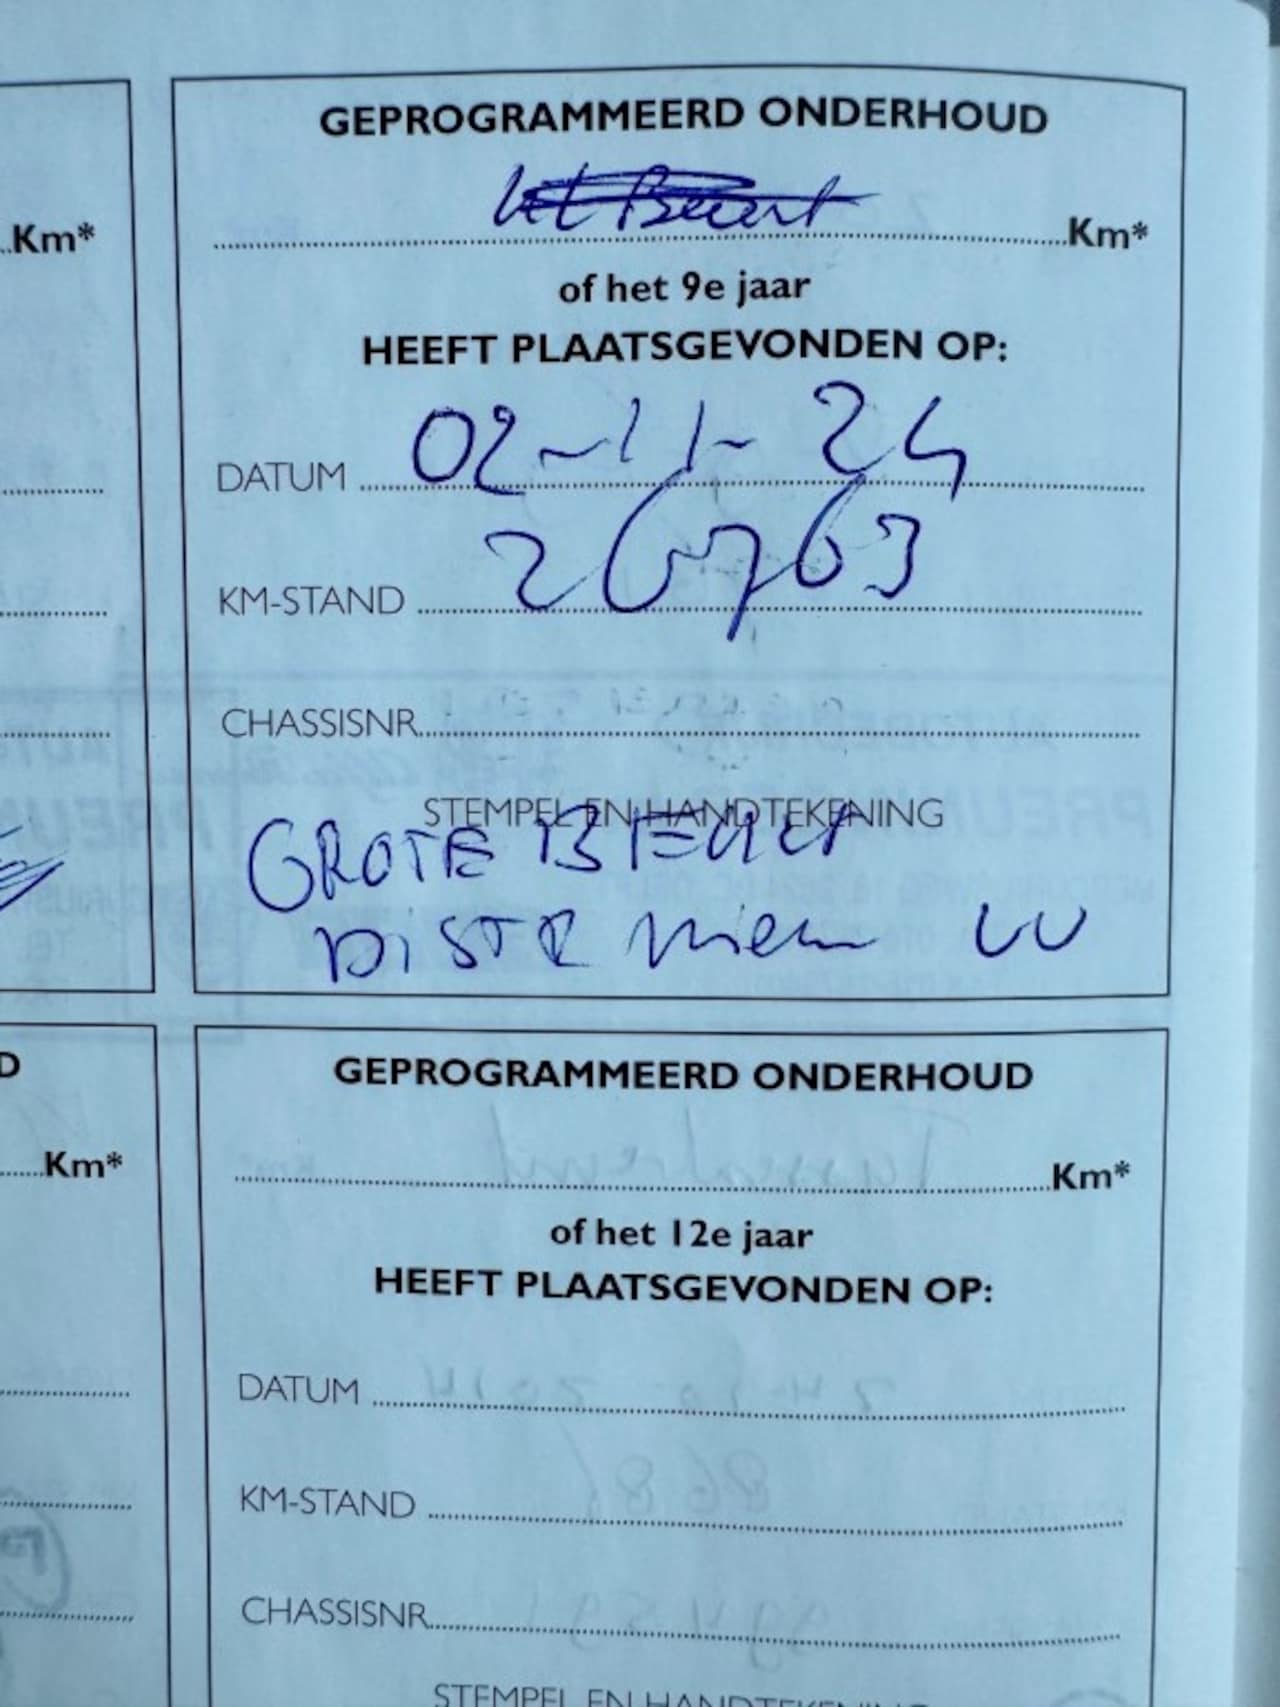 GEPROGRAMMEERD ONDERHOUD
..Km*
Km*
of het 9e jaar
HEEFT PLAATSGEVONDEN OP:
DATUM 02-11-24
KM-STAND 26763
CHASSISNR.
STEMPEL EN HANDTEKENING
GROTE BEURT
DISTR nieuw
D
GEPROGRAMMEERD ONDERHOUD
Km*
Km*
of het 12e jaar
HEEFT PLAATSGEVONDEN OP:
DATUM
KM-STAND
CHASSISNR.
STEMPEL EN HANDTEKENING